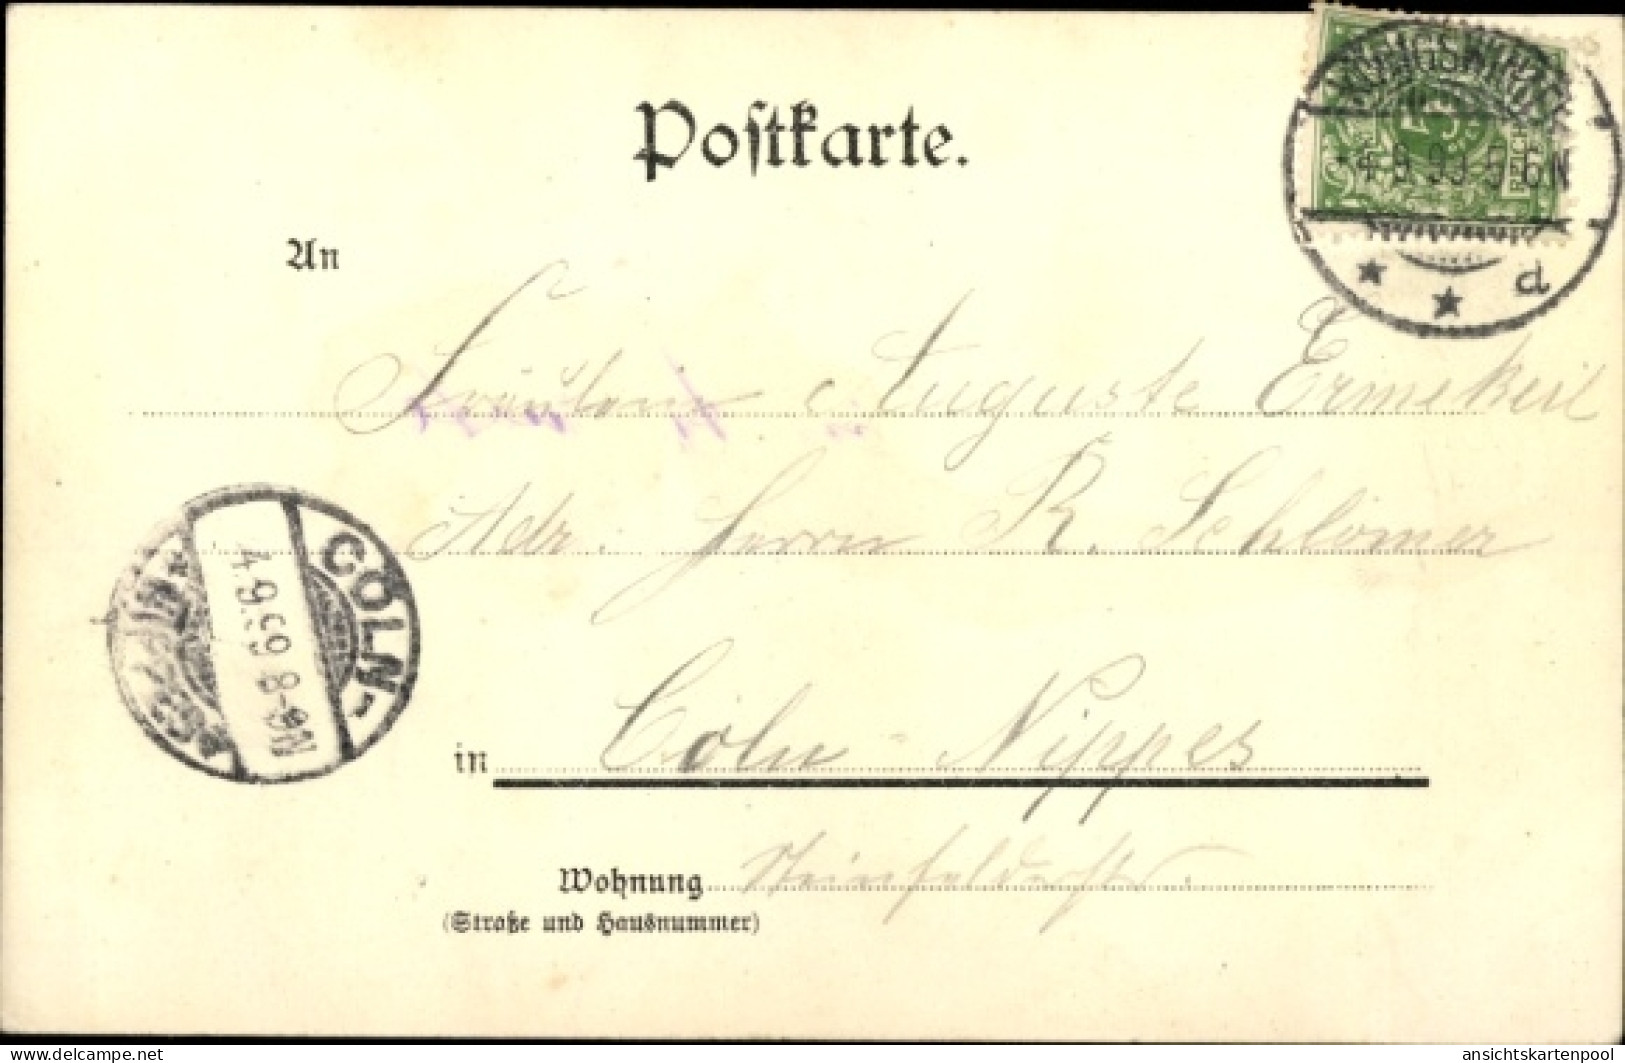 Postkarte.
KÖNIGSWINTER
4 9 99 5-6N
d
An
Fräulein Auguste Ermekeil
Adr. Herrn R. Schlömer
CÖLN-
4.9.99 8-9N
in Cöln-Nippes
Wohnung Steinfelderstr.
(Straße und Hausnummer)
www.delcampe.net
ansichtskartenpool